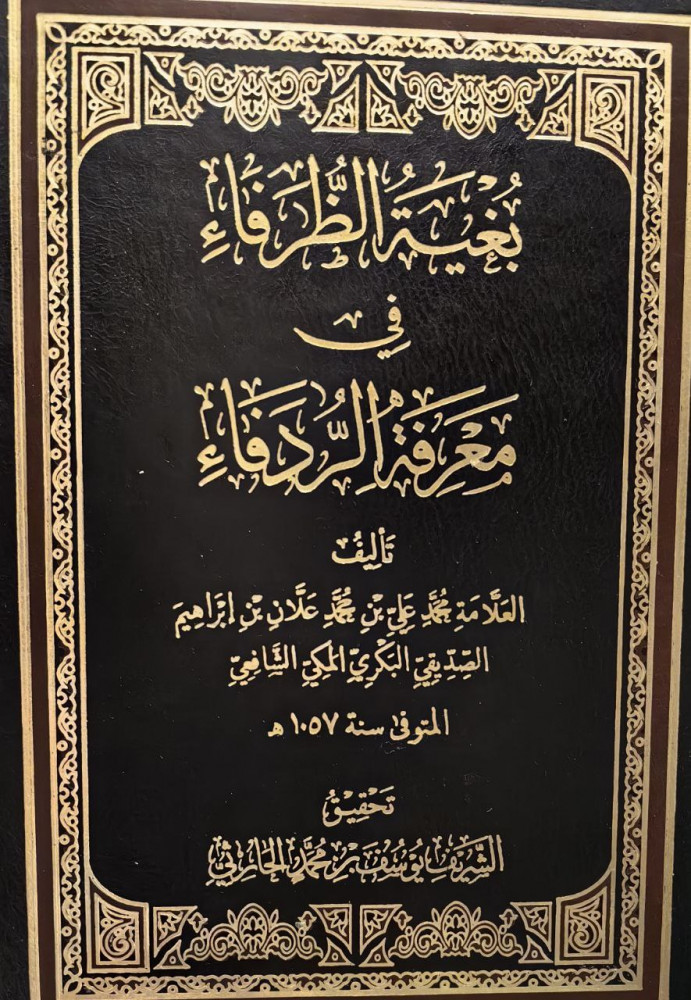 بُغْيَةُ الظُّرَفَاءِ
فِي
مَعْرِفَةِ الرُّدَفَاءِ
تَأْلِيفُ
العَلَّامَةِ مُحَمَّد عَلِيّ بْنِ مُحَمَّد عَلَّان بْنِ إِبْرَاهِيمَ
الصِّدِّيقِيّ البَكْرِيّ المَكِّيّ الشَّافِعِيّ
المتوفى سنة ١٠٥٧ هـ
تَحْقِيقُ
الشَّرِيفِ يُوسُفَ بْنِ مُحَمَّدٍ الحَارِثِيّ